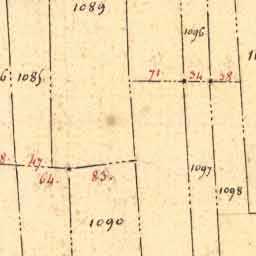 1089
1096
6.
1085
71
34
38
8.
47.
64.
85.
1097
1098
1090